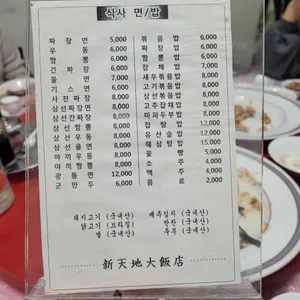 식사 면/밥
짜장면 5,000
우동 6,000
짬뽕 6,000
간짜장 6,000
울면 7,000
기스면 6,000
사천짜장 8,000
삼선짜장 8,000
삼선간짜장 8,000
삼선짬뽕 8,000
삼선우동 8,000
삼선울면 8,000
야끼우동 8,000
야끼짬뽕 8,000
광동면 12,000
군만두 6,000
볶음밥 6,000
짜장밥 6,000
짬뽕밥 6,000
잡채밥 7,000
새우볶음밥
고기볶음밥
삼선볶음밥
고추잡채밥
마파두부밥
잡탕밥 12,000
유산슬밥 12,000
해삼탕밥 15,000
꽃빵 5,000
소주 4,000
맥주 4,000
음료 2,000
돼지고기 (국내산)
닭고기 (브라질)
쌀 (국내산)
배추김치 (국내산)
반찬 (국내산)
두부 (국내산)
新天地大飯店